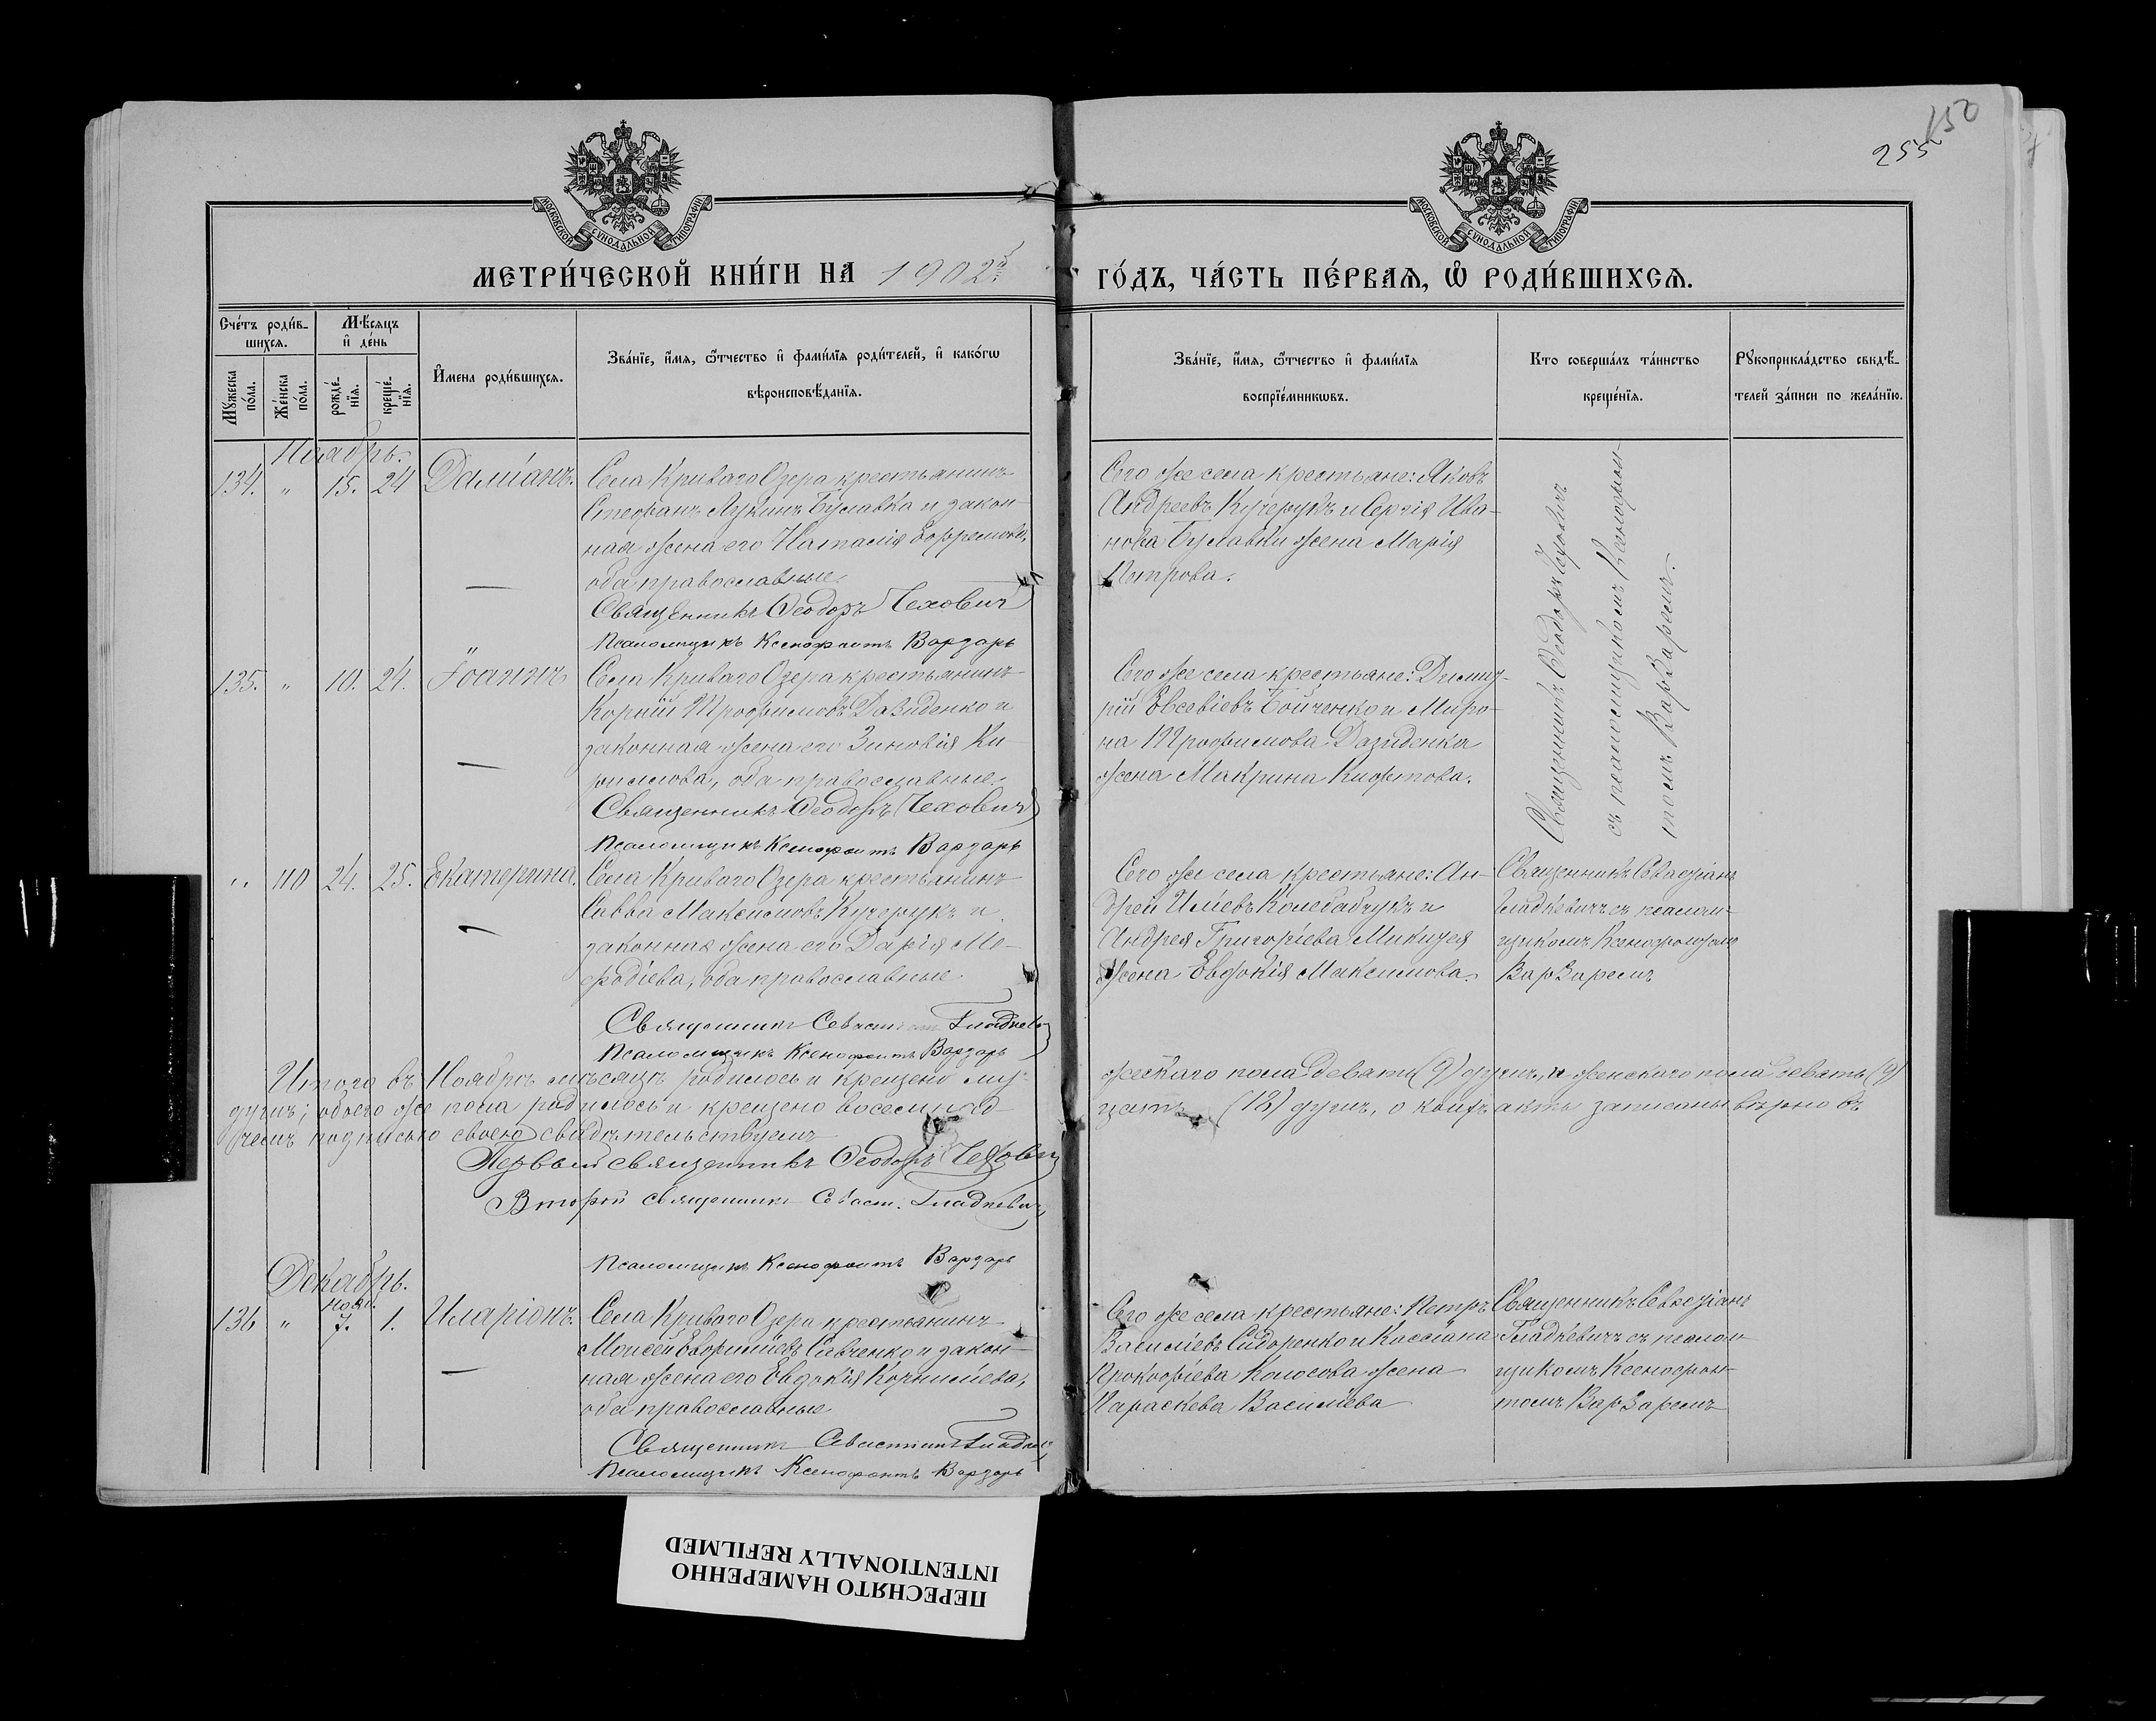 255 150
МОСКОВСКОЙ СУНОДАЛЬНОЙ ТИПОГРАФІИ
МОСКОВСКОЙ СУНОДАЛЬНОЙ ТИПОГРАФІИ
МЕТРИ́ЧЕСКОЙ КНИ́ГИ НА 1902й ГО́ДЪ, ЧА́СТЬ ПЕ́РВАѦ, Ѽ РОДИ́ВШИХСѦ.
Сче́тъ роди́в-
шихсѧ.
Мꙋ́жеска по́ла.
Же́нска по́ла.
Мѣ́сѧцъ
и҆ де́нь
рожде́-
нїѧ.
креще́-
нїѧ.
И҆мена роди́вшихсѧ.
Зва́нїе, и҆́мѧ, ѻ҆́тчество и҆ фами́лїѧ роди́телей, и҆ како́гѡ
вѣроисповѣ́данїѧ.
Зва́нїе, и҆́мѧ, ѻ҆́тчество и҆ фами́лїѧ
воспрїе́мникѡвъ.
Кто соверша́лъ та́инство
креще́нїѧ.
Рꙋкоприкла́дство свидѣ́-
телей за́писи по жела́нїю.
Ноябрь.
134. " 15. 24 Даміанъ.
Села Криваго Озера крестьянинъ
Стефанъ Лукинъ Буславка и закон-
ная жена его Наталія Ефремова,
оба православные.
Священникъ Ѳеодоръ Чеховичъ
Псаломщикъ Ксенофонтъ Варзарь
Сего же села крестьяне: Яковъ
Андреевъ Кучерукъ и Сергія Ива-
нова Буславки жена Марія
Петрова.
Священникъ Ѳеодоръ Чеховичъ
съ псаломщикомъ Ксенофон-
томъ Варзаремъ.
135. " 10. 24. Іоаннъ
Села Криваго Озера крестьянинъ
Корнилій Трофимовъ Давиденко и
законная жена его Зиновія Ки-
риллова, оба православные.
Священникъ Ѳеодоръ Чеховичъ
Псаломщикъ Ксенофонтъ Варзарь
Сего же села крестьяне: Димит-
рій Евсевіевъ Бойченко и Миро-
на Трофимова Давиденка
жена Макрина
" 110 24. 25. Екатерина.
Села Криваго Озера крестьянинъ
Савва Максимовъ Кучерукъ и
законная жена его Дарія Ме-
ѳодіева, оба православные
Священникъ Гладкевичъ
Псаломщикъ Ксенофонтъ Варзарь
Сего же села крестьяне: Ан-
дрей Иліевъ Колебабчукъ и
Андрея Григоріева Микицея
жена Евдокія Максимова.
Священникъ Севастіанъ
Гладкевичъ съ псалом-
щикомъ Ксенофонтомъ
Варзаремъ
Итого въ Ноябрѣ мѣсяцѣ родилось и крещено муж-
жескаго пола девять (9) душъ, и женскаго пола девять (9)
душъ; обоего же пола родилось и крещено восемнад-
цать (18) душъ, о коихъ акты записаны вѣрно въ
чемъ подписью своею свидѣтельствуемъ
Первый священникъ Ѳеодоръ Чеховичъ
Второй священникъ Севаст. Гладкевичъ
Псаломщикъ Ксенофонтъ Варзарь
Декабрь.
136 " нояб. 7. 1. Иларіонъ.
Села Криваго Озера крестьянинъ
Моисей Савченко и закон-
ная жена его Евдокія Корниліева,
оба православные
Священникъ Севастіанъ
Псаломщикъ Ксенофонтъ Варзарь
Сего же села крестьяне: Петръ
Василіевъ Сидоренко и Кассіана
Прокофіева Колосова жена
Параскева Василіева
Священникъ Севастіанъ
Гладкевичъ съ псалом-
щикомъ Ксенофон-
томъ Варзаремъ
ПЕРЕСНЯТО НАМЕРЕННО
INTENTIONALLY REFILMED